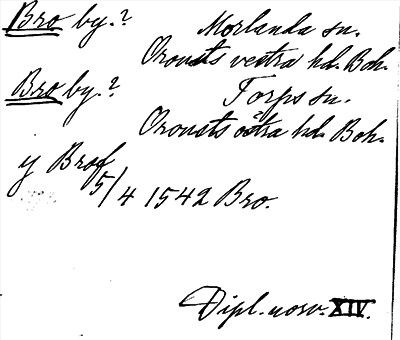 Bro by.? Morlanda sn.
Orousts vestra hd. Boh.
Bro by.? Torps sn.
Orousts östra hd. Boh.
y Brof
5/4 1542 Bro.
Dipl. norv. XIV.